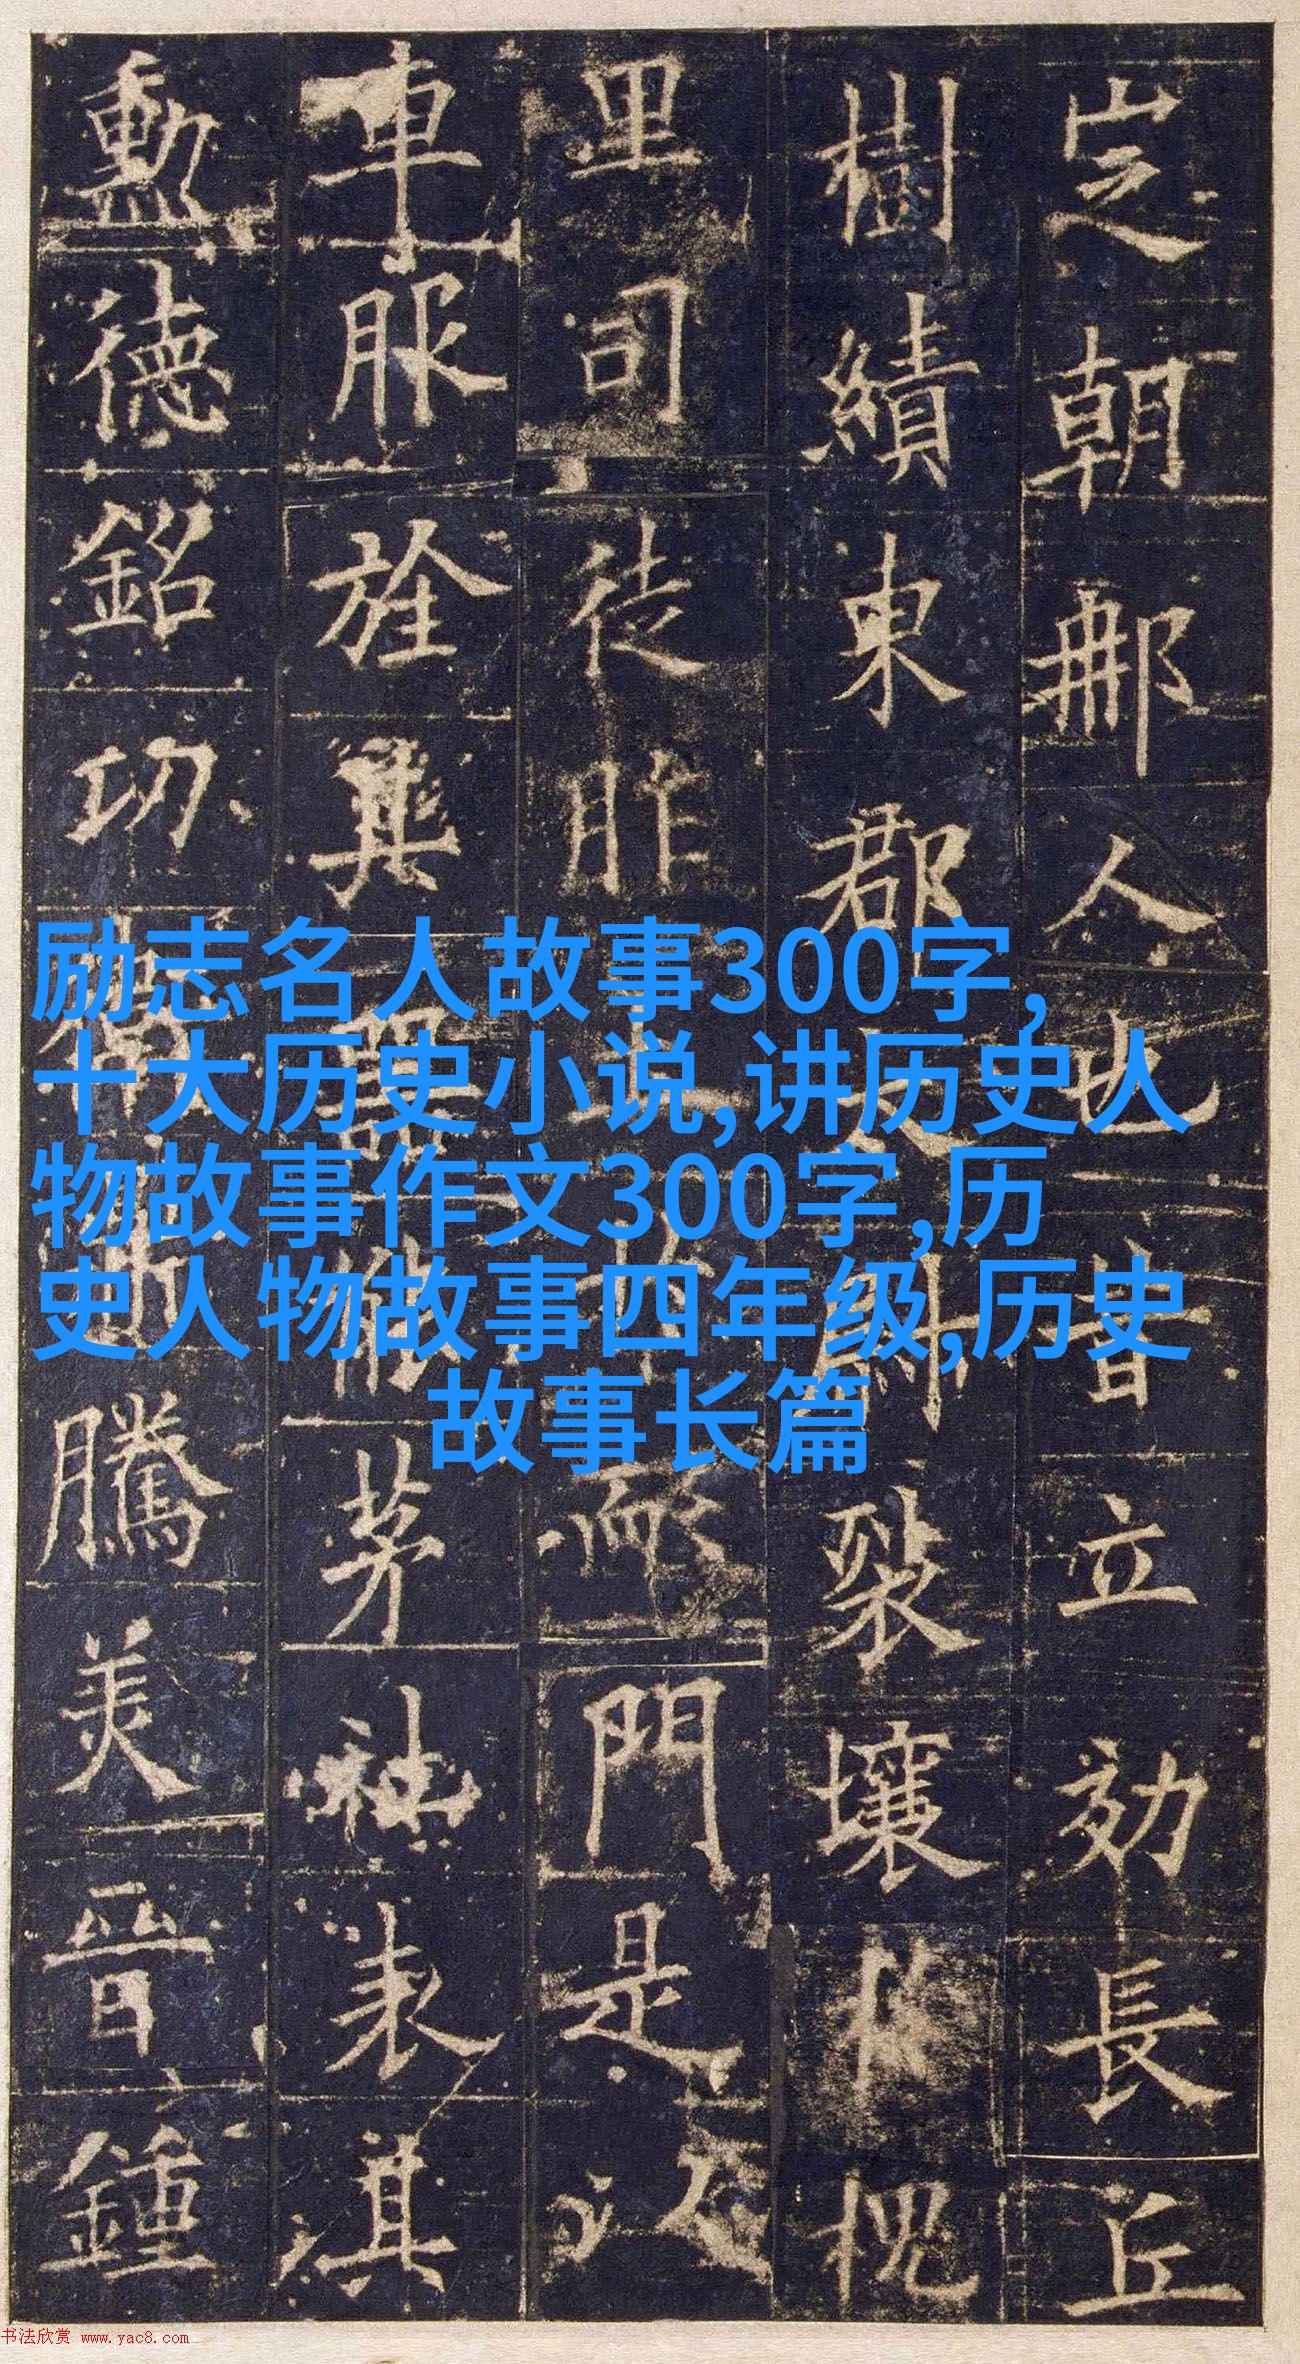 定朝那人也昔立効長丘
樹績東郡尉裂壤槐
里司徒胙門是以
車服旌其器能茅社表其
勳德銘功騰美晉鍾
励志名人故事300字,
十大历史小说,讲历史人
物故事作文300字,历
史人物故事四年级,历史
故事长篇
书法欣赏 www.yac8.com